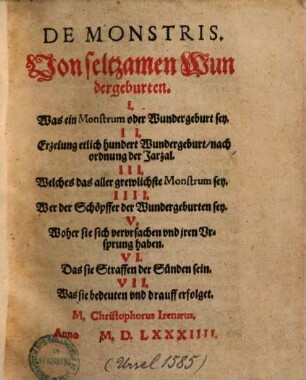 DE MONSTRIS.
Von seltzamen Wun
dergeburten.
I.
Was ein Monstrum oder Wundergeburt sey.
II.
Erzelung etlich hundert Wundergeburt/nach
ordnung der Jarzal.
III.
Welches das aller grewlichste Monstrum sey.
IIII.
Wer der Schöpffer der Wundergeburten sey.
V.
Woher sie sich vervrsachen vnd jren Vr-
sprung haben.
VI.
Das sie Straffen der Sünden sein.
VII.
Was sie bedeuten vnd drauff erfolget.
M, Christophorus Irenæus,
Anno M, D, LXXXIIII,
(Ursel 1585)